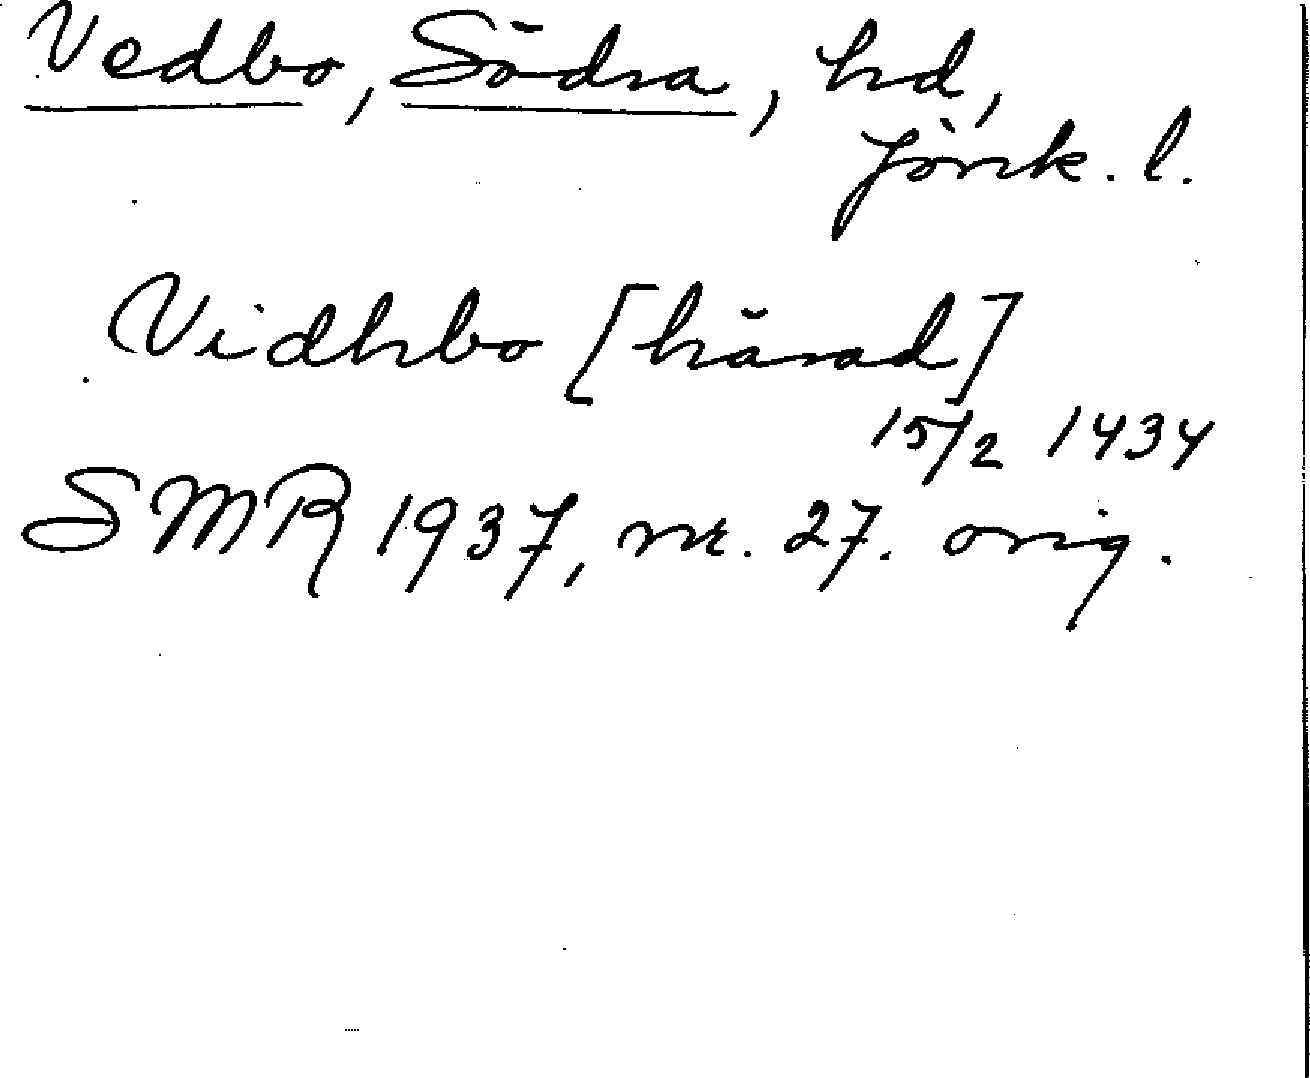 Vedbo, Södra, hd,
Jönk. l.
Vidhbo [härad]
15/2 1434
SMR 1937, nr. 27. orig.